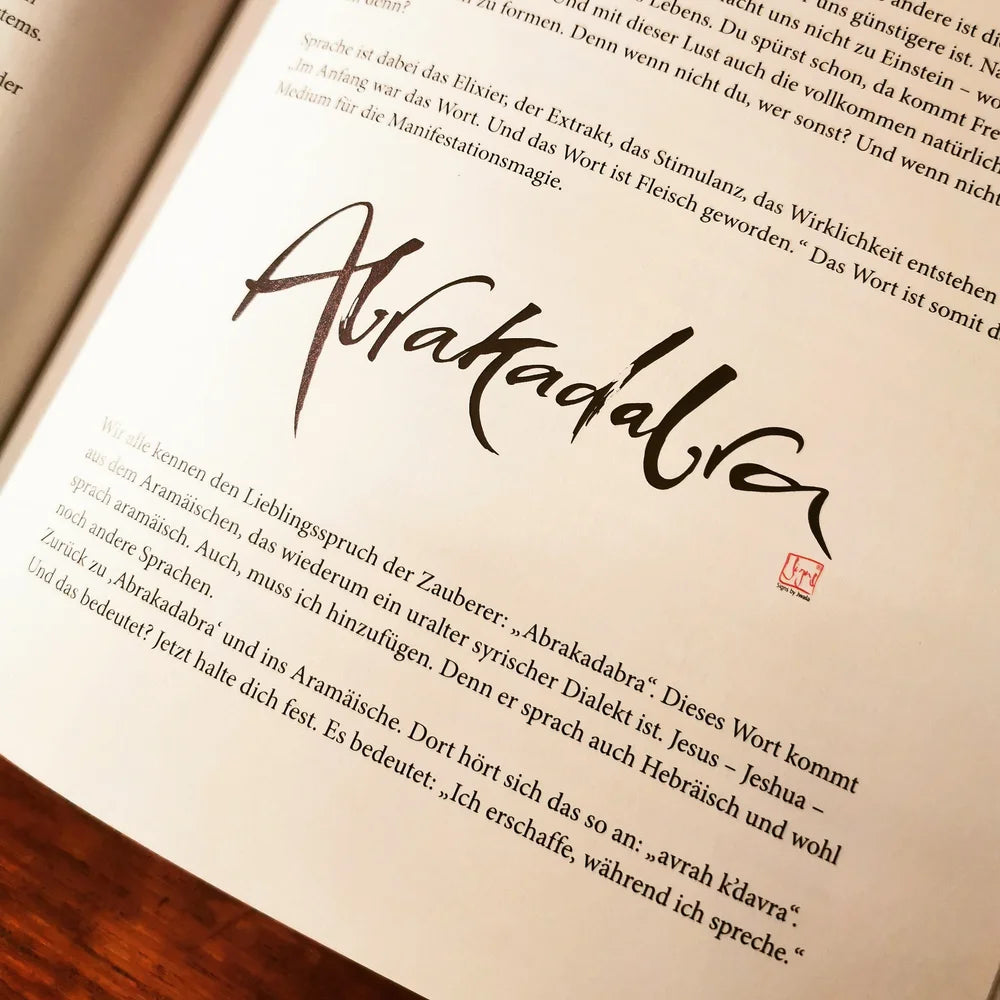 stems.
der
andere ist die
uns günstigere ist. Na
acht uns nicht zu Einstein – wo
Lebens. Du spürst schon, da kommt Fre
Und mit dieser Lust auch die vollkommen natürlich
zu formen. Denn wenn nicht du, wer sonst? Und wenn nicht
denn?
Sprache ist dabei das Elixier, der Extrakt, das Stimulanz, das Wirklichkeit entstehen
„Im Anfang war das Wort. Und das Wort ist Fleisch geworden.“ Das Wort ist somit d
Medium für die Manifestationsmagie.
Abrakadabra
Signs by Jwala
Wir alle kennen den Lieblingsspruch der Zauberer: „Abrakadabra“. Dieses Wort kommt
aus dem Aramäischen, das wiederum ein uralter syrischer Dialekt ist. Jesus – Jeshua –
sprach aramäisch. Auch, muss ich hinzufügen. Denn er sprach auch Hebräisch und wohl
noch andere Sprachen.
Zurück zu ‚Abrakadabra‘ und ins Aramäische. Dort hört sich das so an: „avrah k’davra“.
Und das bedeutet? Jetzt halte dich fest. Es bedeutet: „Ich erschaffe, während ich spreche.“